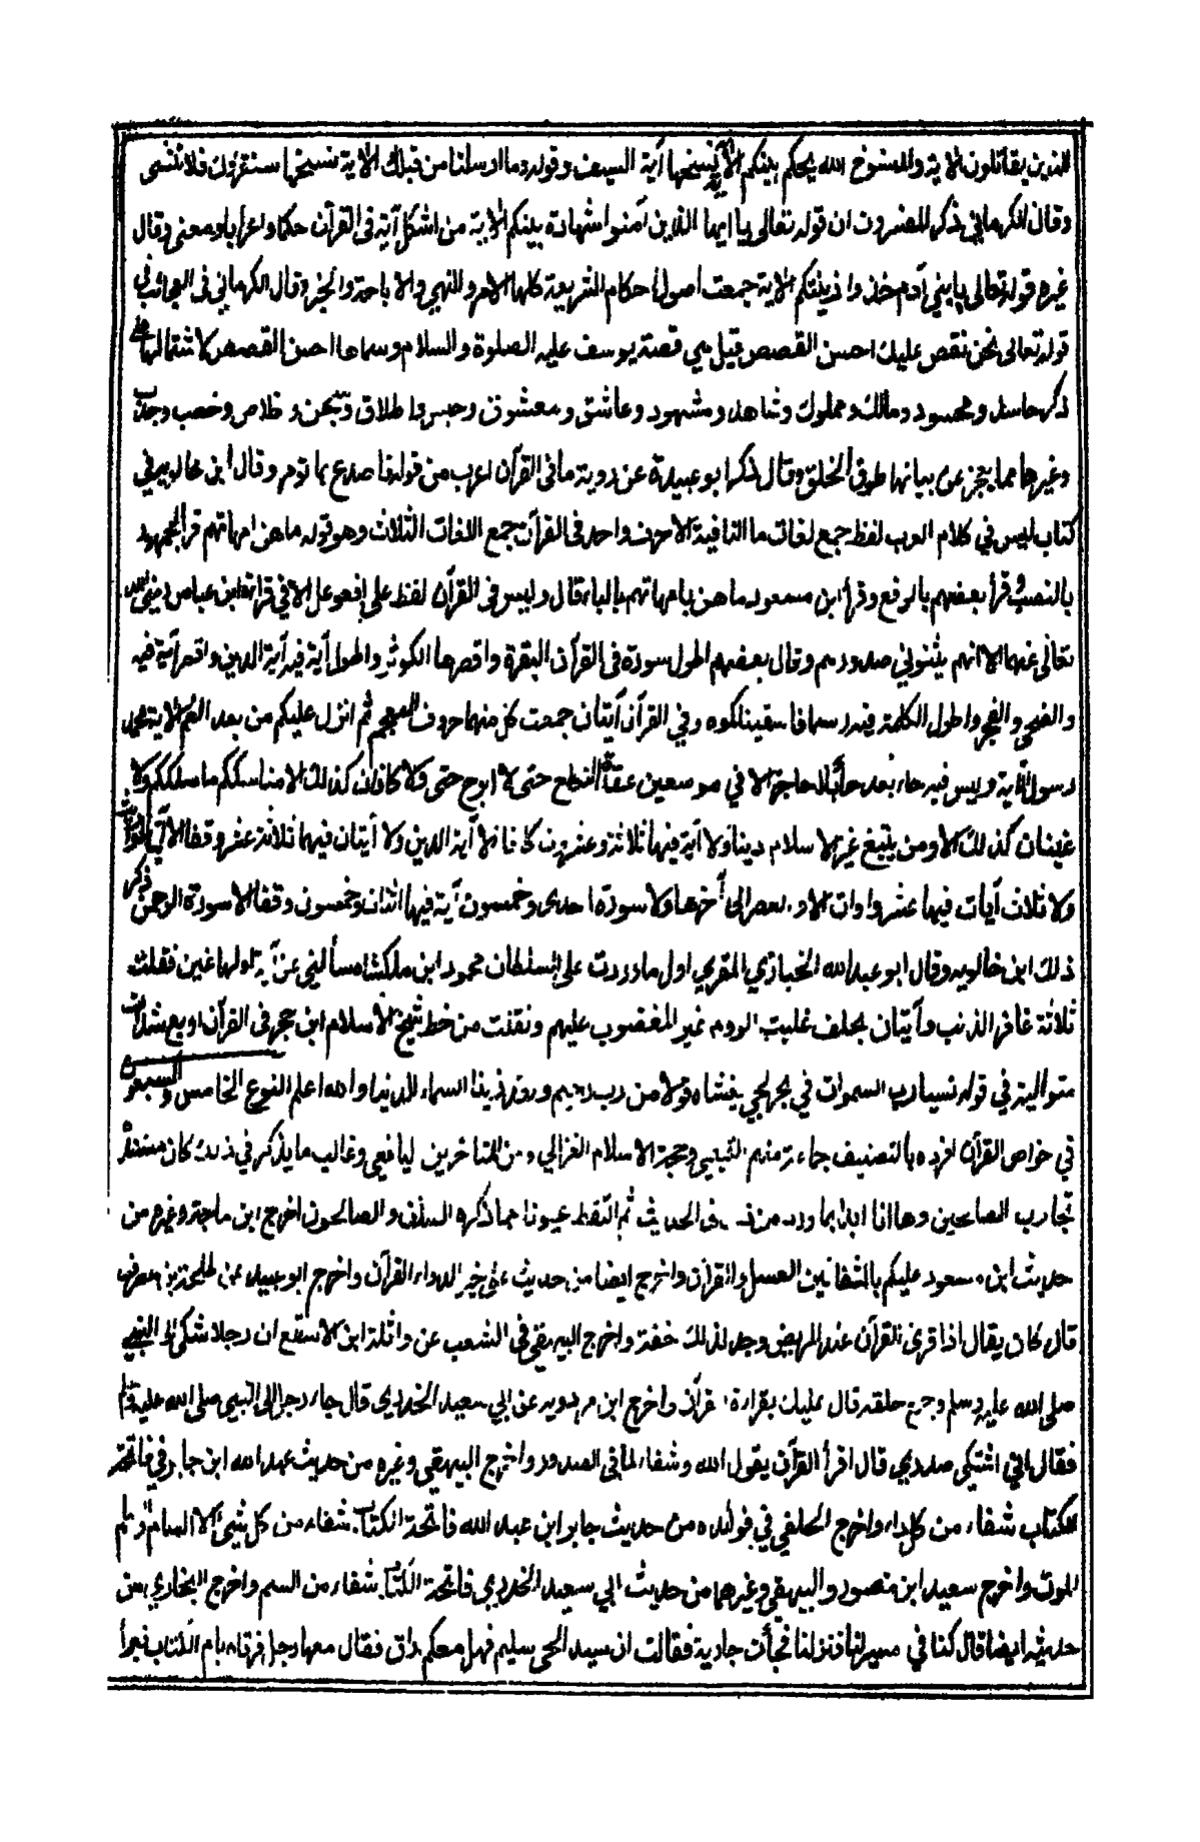 للذين يقاتلون الآية والمنسوخ الله يحكم بينكم الآية نسخها آية السيف وقوله وما ارسلنا من قبلك الآية نسخها سنقرئك فلا تنسى
وقال الكرماني ذكر المفسرون ان قوله تعالى يا ايها الذين آمنوا شهادة بينكم الآية من اشكل آية في القرآن حكما واعرابا ومعنى وقال
غيره قوله تعالى يا بني آدم خذوا زينتكم الآية جمعت اصول احكام الشريعة كلها الامر والنهي والاباحة والخبر وقال الكرماني في العجائب في
قوله تعالى نحن نقص عليك احسن القصص قيل هي قصة يوسف عليه الصلوة والسلام وسماها احسن القصص لاشتمالها على
ذكر حاسد ومحسود ومالك ومملوك وشاهد ومشهود وعاشق ومعشوق وحبس واطلاق وسجن وخلاص وخصب وجدب
وغيرها مما يعجز عن بيانها طوق الخلق وقال ذكر ابو عبيدة عن روبة ما في القرآن اعرب من قوله فاصدع بما تومر وقال ابن خالويه في
كتاب ليس في كلام العرب لفظ جمع لغات ما النافية الا حرف واحد في القرآن جمع اللغات الثلاث وهو قوله ما هن امهاتهم قرأ الجمهور
بالنصب وقرأ بعضهم بالرفع وقرأ ابن مسعود ما هن بامهاتهم بالباء قال وليس في القرآن لفظ على افعوعل الا في قراءة ابن عباس رضي الله
تعالى عنهما الا انهم يثنوني صدورهم وقال بعضهم اطول سورة في القرآن البقرة واقصرها الكوثر واطول آية فيه آية الدين واقصر آية فيه
والضحى والفجر واطول الكلمة فيه رسما فاسقيناكموه وفي القرآن آيتان جمعت كل منهما حروف المعجم ثم انزل عليكم من بعد الغم الآية محمد
رسول الآية وليس فيه حاء بعد حاء بلا حاجز الا في موضعين عقدة النكاح حتى لا ابرح حتى ولا كافان كذلك الا مناسككم ما سلككم ولا
غينان كذلك الا ومن يبتغ غير الاسلام دينا ولا آية فيها ثلاثة وعشرون كافا الا آية الدين ولا آيتان فيهما ثلاثة عشر وقفا الا آيتي المواريث
ولا ثلاث آيات فيها عشر واوات الا والعصر الى آخرها ولا سورة احدى وخمسون آية فيها اثنان وخمسون وقفا الا سورة الرحمن ذكر
ذلك ابن خالويه وقال ابو عبد الله الخبازي المقري اول ما وردت على السلطان محمود ابن ملكشاه سألني عن آية اولها غين فقلت
ثلاثة غافر الذنب وآيتان بخلف غلبت الروم غير المغضوب عليهم ونقلت من خط شيخ الاسلام ابن حجر في القرآن اربع شدات
متوالية في قوله نسيا رب السموات في بحر لجي يغشاه قولا من رب رحيم ولقد زينا السماء الدنيا والله اعلم النوع الخامس والسبعون
في خواص القرآن افرده بالتصنيف جماعة منهم التميمي وحجة الاسلام الغزالي ومن المتاخرين اليافعي وغالب ما يذكر في ذلك كان مستنده
تجارب الصالحين وها انا ابدا بما ورد من ذلك في الحديث ثم التقط عيونا مما ذكره السلف والصالحون اخرج ابن ماجة وغيره من
حديث ابن مسعود عليكم بالشفائين العسل والقرآن واخرج ايضا من حديث علي خير الدواء القرآن واخرج ابو عبيد عن طلحة بن مصرف
قال كان يقال اذا قرئ القرآن عند المريض وجد لذلك خفة واخرج البيهقي في الشعب عن واثلة ابن الاسقع ان رجلا شكى الى النبي
صلى الله عليه وسلم وجع حلقه قال عليك بقراءة القرآن واخرج ابن مردويه عن ابي سعيد الخدري قال جاء رجل الى النبي صلى الله عليه وسلم
فقال اني اشتكي صدري قال اقرأ القرآن يقول الله وشفاء لما في الصدور واخرج البيهقي وغيره من حديث عبد الله ابن جابر في فاتحة
الكتاب شفاء من كل داء واخرج الخلعي في فوائده من حديث جابر ابن عبد الله فاتحة الكتاب شفاء من كل شيئ الا السام والسام
الموت واخرج سعيد ابن منصور والبيهقي وغيرهما من حديث ابي سعيد الخدري فاتحة الكتاب شفاء من السم واخرج البخاري من
حديثه ايضا قال كنا في مسير لنا فنزلنا فجأت جارية فقالت ان سيد الحي سليم فهل معكم راق فقال معها رجل فرقاه بام الكتاب فبرأ